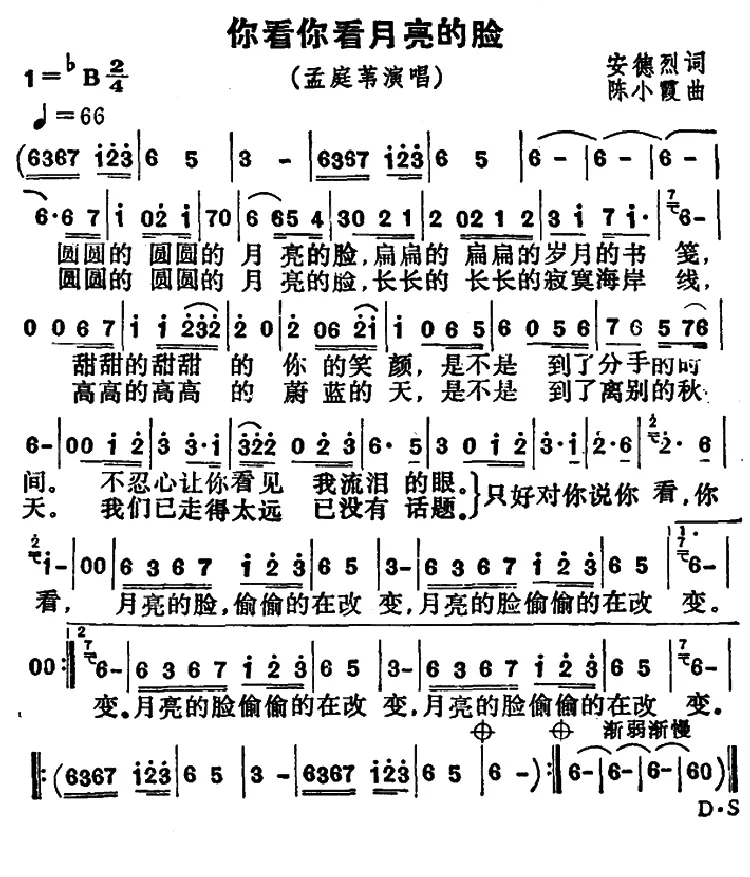 你看你看月亮的脸
1=♭B 2/4
(孟庭苇演唱)
安德烈词
陈小霞曲
♩=66
(6367 i̇2̇3̇|6 5|3 -|6367 i̇2̇3̇|6 5|6-|6-|6-|
6·6 7|i̇ 02̇ i̇|70|6 65 4|30 2 1|2 02 1 2|3 i̇ 7 i̇·|6-|
圆圆的 圆圆的 月 亮的脸,扁扁的 扁扁的岁月的书 笺,
圆圆的 圆圆的 月 亮的脸,长长的 长长的寂寞海岸 线,
0 0 6 7|i̇ i̇ 2̇3̇2̇|2̇ 0|2̇ 06 2̇i̇|i̇ 0 6 5|6 0 5 6|7 6 5 76|
甜甜的甜甜 的 你 的笑 颜,是不是 到了分手的时
高高的高高 的 蔚 蓝的 天,是不是 到了离别的秋
6-|00 i̇ 2̇|3̇ 3̇·i̇|3̇2̇2̇ 0 2̇ 3̇|6· 5|3 0 i̇ 2̇|3̇·i̇|2̇·6|2̇· 6|
间。 不忍心让你看见 我流泪 的眼。}只好对你说你 看,你
天。 我们已走得太远 已没有 话题。
i̇-|00|6 3 6 7 i̇ 2̇ 3̇|6 5|3-|6 3 6 7 i̇ 2̇ 3̇|6 5|6-|
看, 月亮的脸,偷偷的在改 变,月亮的脸偷偷的在改 变。
00:‖6-|6 3 6 7 i̇ 2̇ 3̇|6 5|3-|6 3 6 7 i̇ 2̇ 3̇|6 5|6-|
变。月亮的脸偷偷的在改 变,月亮的脸偷偷的在改 变。
渐弱渐慢
‖:(6367 i̇2̇3̇|6 5|3 -|6367 i̇2̇3̇|6 5|6 -):‖6-|6-|6-|60)‖
D·S